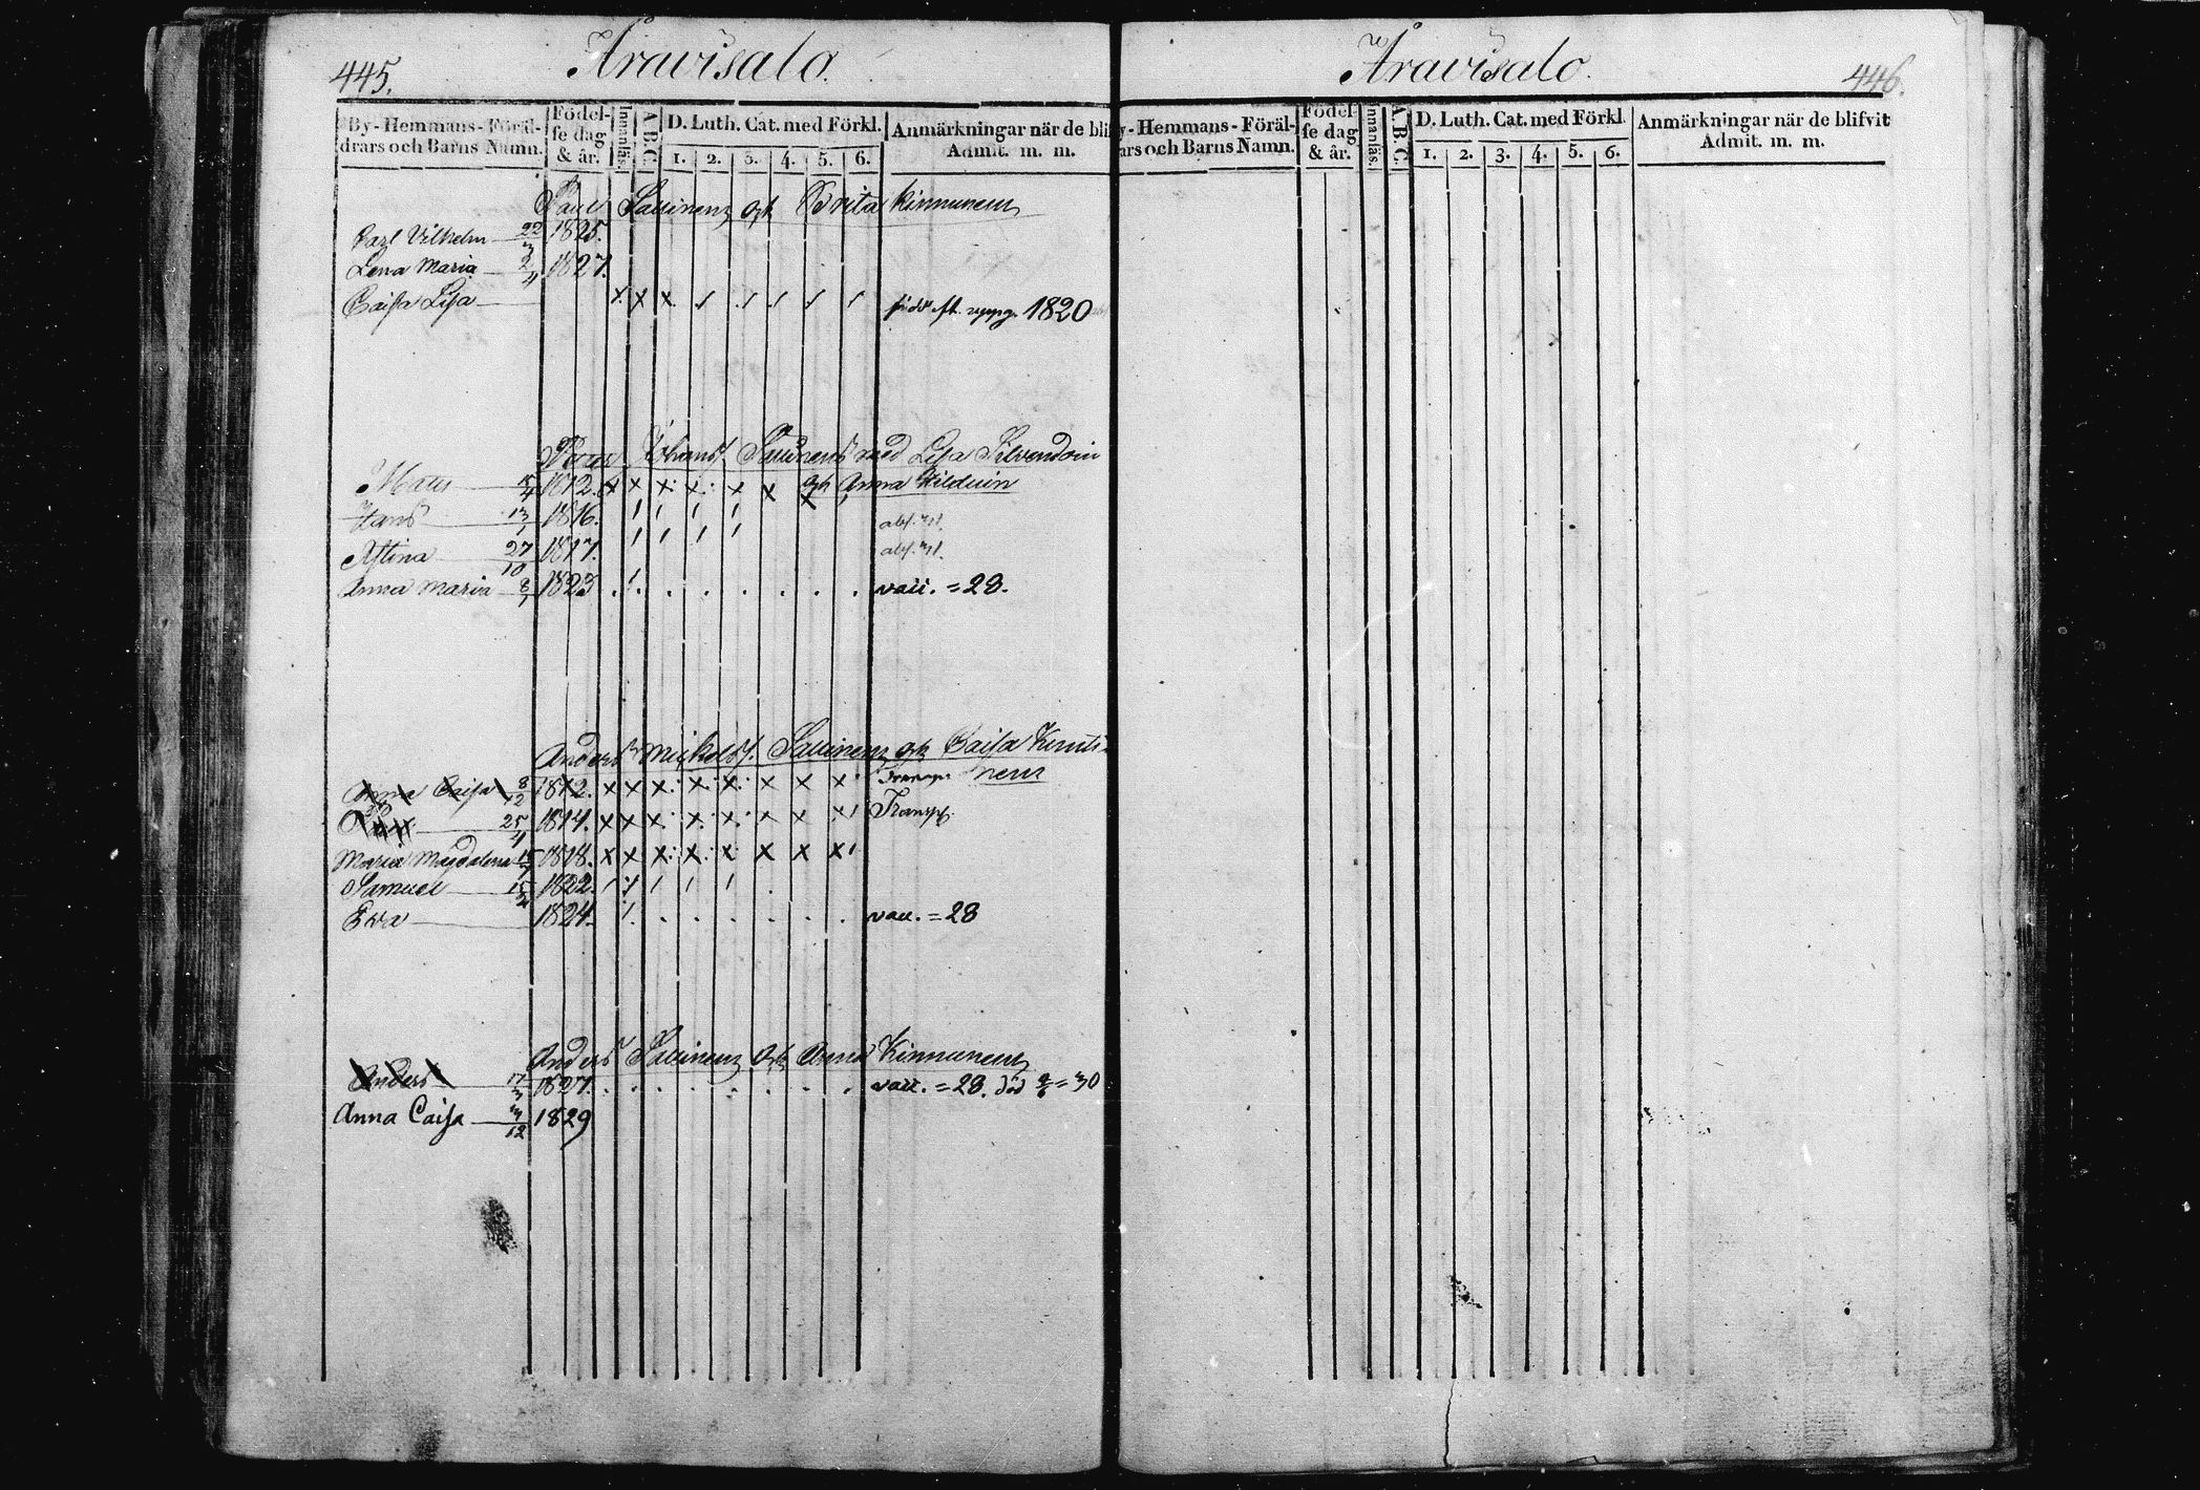 445. Åravisalo.
By-Hemmans-Föräl-
drars och Barns Namn.
Födel-
se dag
& år.
Innanläs.
A.B.C.
D. Luth. Cat. med Förkl.
1. 2. 3. 4. 5. 6.
Anmärkningar när de bli
Admit. m. m.
Paul Sauinen och Brita Kinnunen
Carl Vilhelm 22/3 1825.
Lena Maria 2/4 1827.
Caisa Lisa x x x / / / / / född eft. uppg. 1820
Johans Sauinens med Lisa Silvendoin
Mats 15/4 1812. x x x x x x x och Anna Hilduin
Hans 13/1 1816. / / / /
Stina 27/10 1817. / / / /
Anna Maria 8/1 1823 vacc. = 28.
Anders Michels. Sauinen och Caisa Kinnu-
nen
Anna Caisa 8/12 1812. x x x x x x x x
25/4 1814. x x x x x x x Transp.
Maria Magdalena 1818. x x x x x x x x
Samuel 1822. / / / / /
Ewa 1824. / vacc. = 28
Anders Sauinen och Anna Kinnunen
Anders 17/3 1827. vacc. = 28. död = 30
Anna Caisa 1829
Åravisalo. 446.
y-Hemmans-Föräl-
ars och Barns Namn.
Födel-
se dag
& år.
Innanläs.
A.B.C.
D. Luth. Cat. med Förkl.
1. 2. 3. 4. 5. 6.
Anmärkningar när de blifvit
Admit. m. m.